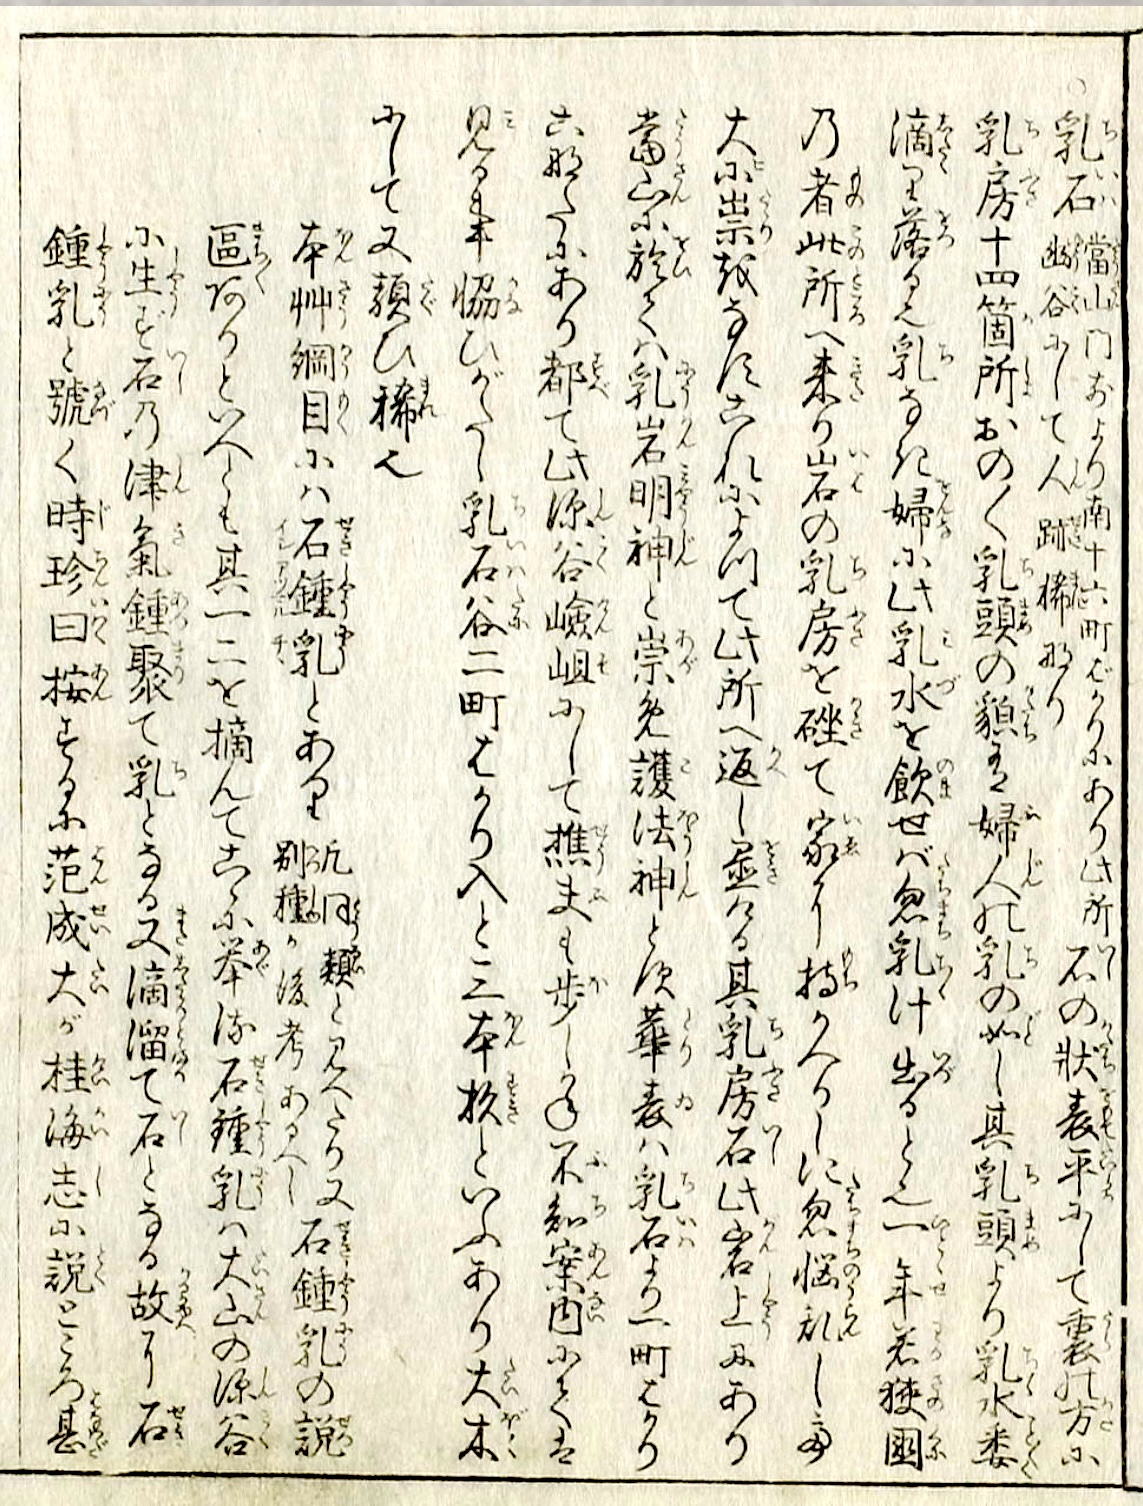 乳石 當山門前より南十六町ばかりにあり此所
幽谷にして人跡稀なり
石の状表平にして裏の方に
乳房十四箇所おの〳〵乳頭の貌有婦人の乳の如し其乳頭より乳水悉
滴り落る也乳なき婦に此乳水を飲せバ忽乳汁出ると也一年若狭國
乃者此所へ来り岩の乳房を㓵て家に持かへりしに忽悩乱し甚
大に祟をなすこれによつて此所へ返し置ける其乳房石此岩上にあり
當山に於てハ乳岩明神と崇免護法神とす華表ハ乳石より一町はかり
こなたにあり都て此深谷嶮岨にして樵夫も歩しかたし不知案内にてハ
見る事協ひがたし乳石谷二町はかり入と三本杦といふあり大木
にして又類ひ稀也
本艸綱目にハ石鍾乳とあり
此同類と見へたり又
別種か後考あるへし
石鍾乳の説
區ありといへとも其一二を摘んてこゝに挙ぐ石鍾乳ハ大山の深谷
に生ず石乃津氣鍾聚て乳となる又滴溜て石となる故に石
鍾乳と號く時珍曰按ずるに范成大が桂海志に説ところ甚